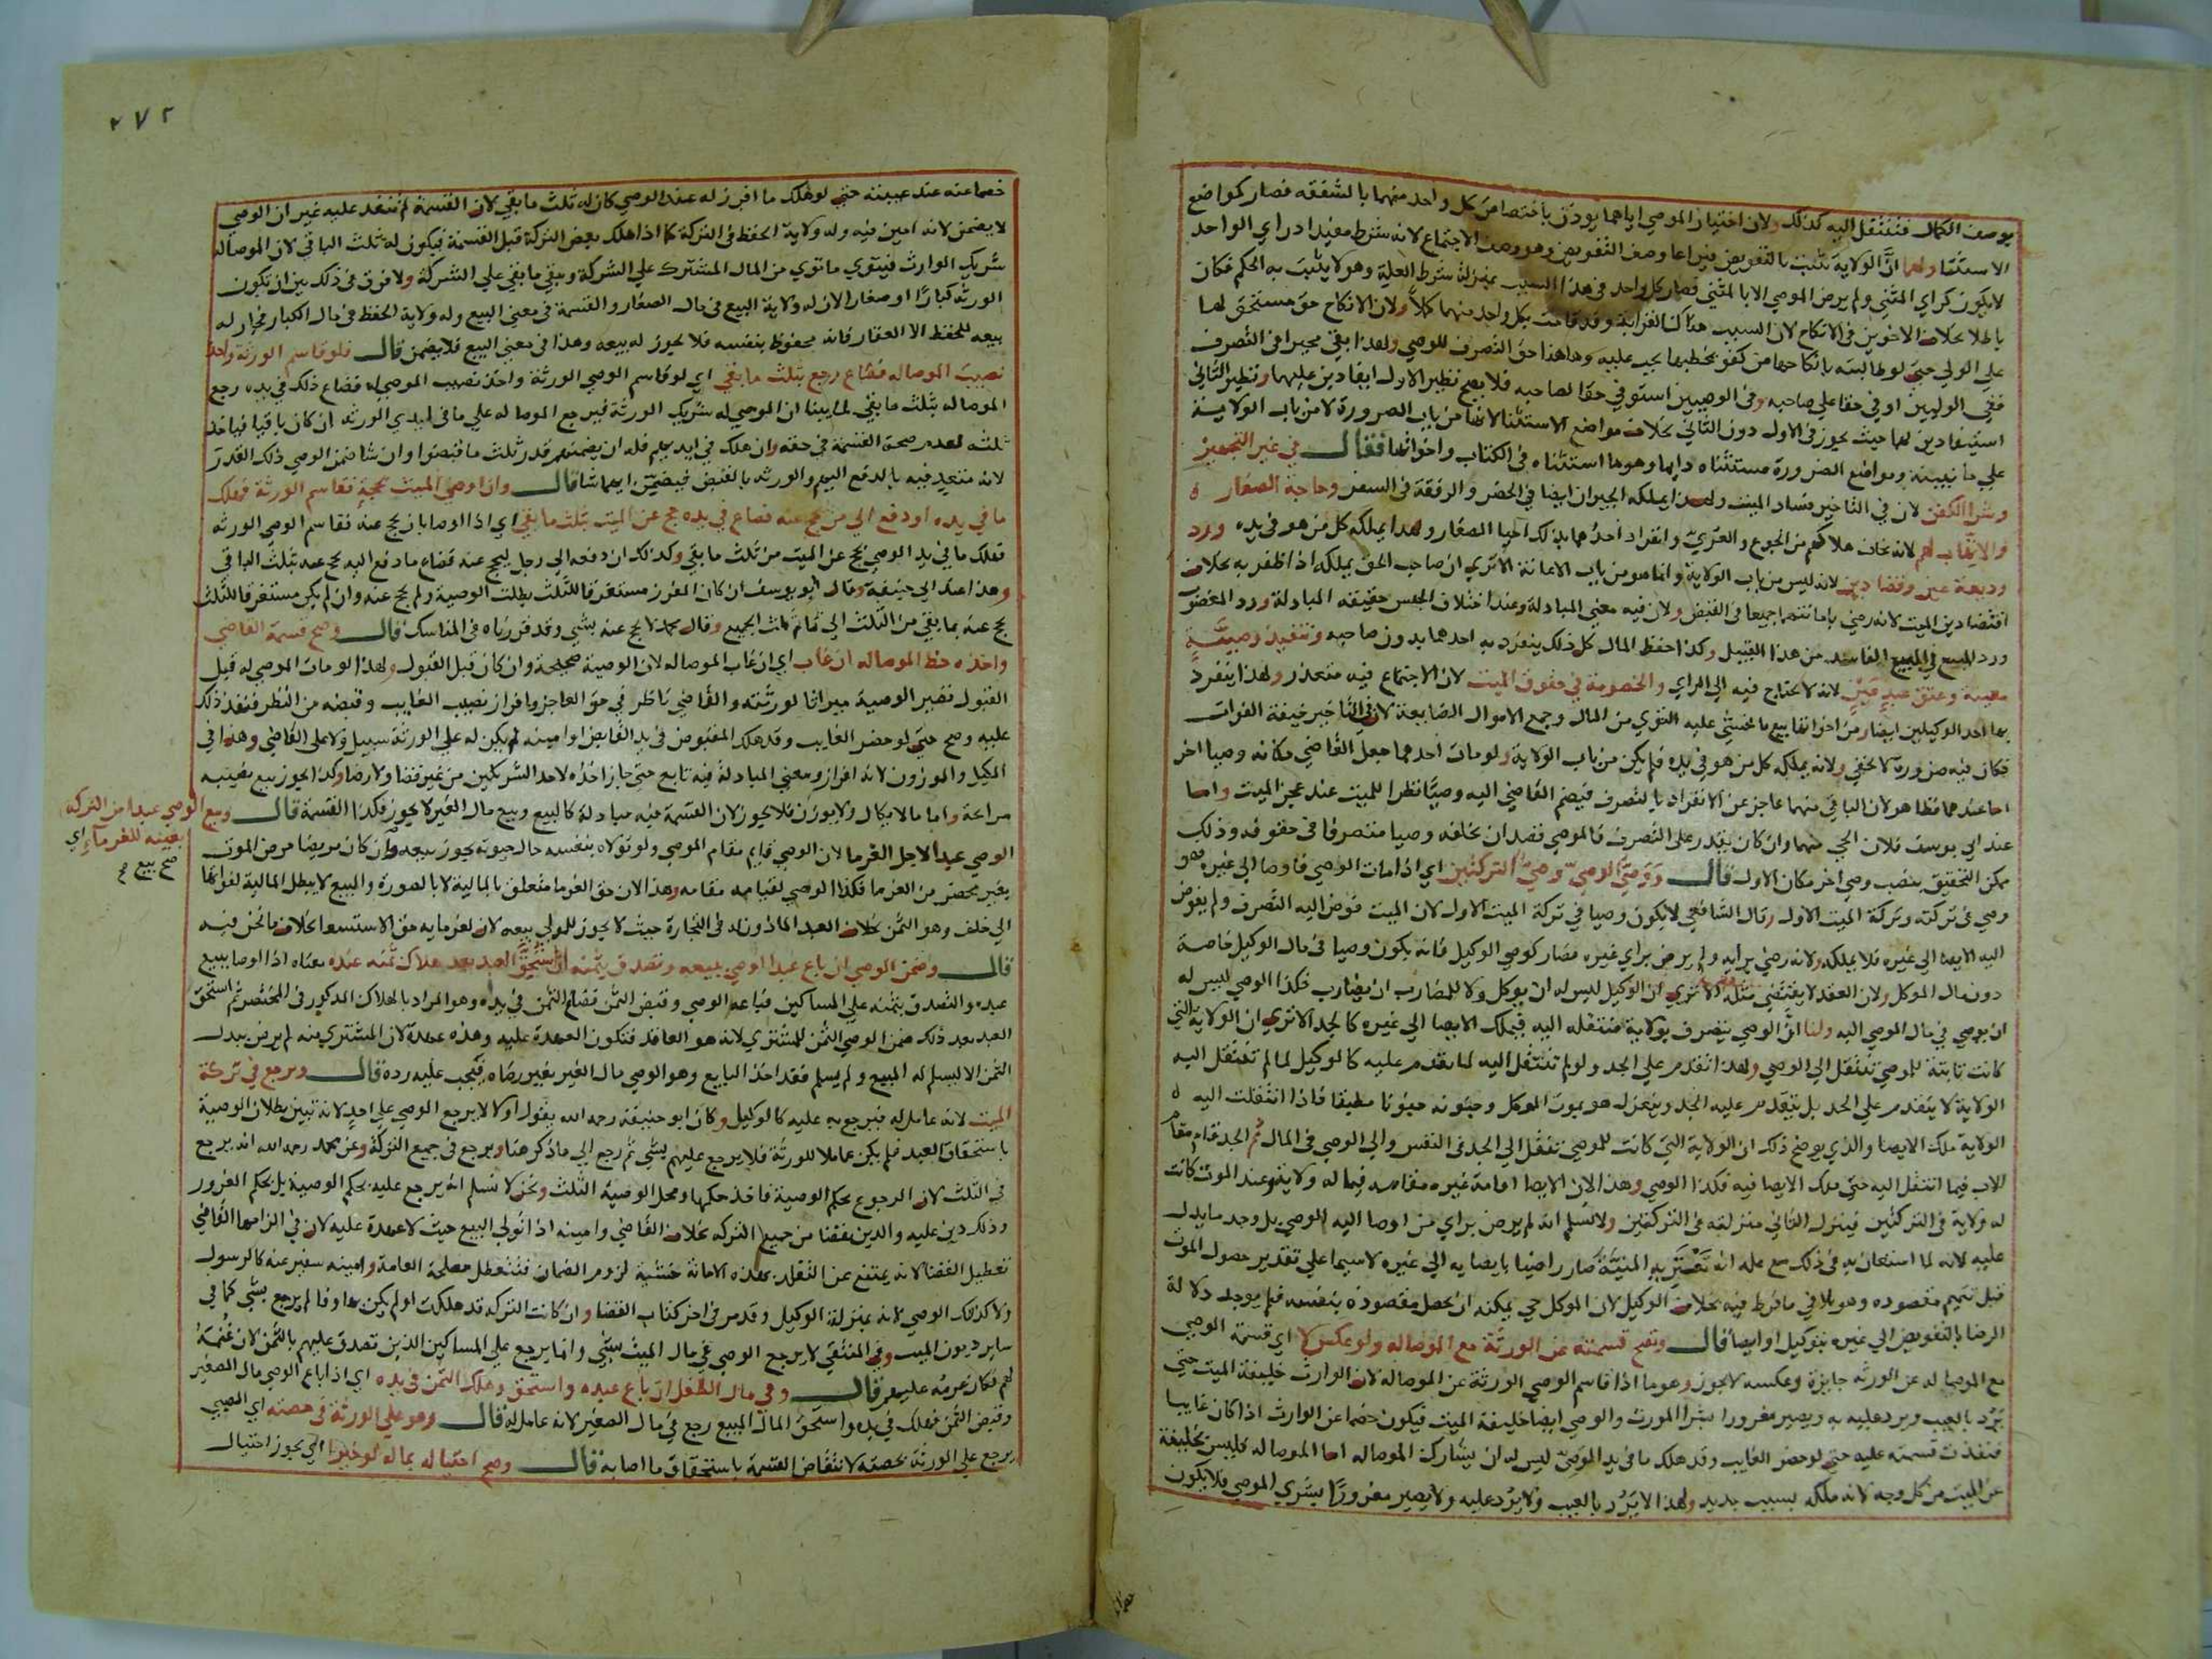 بوصف الكمال فتنتقل اليه كذلك ولان اختيار الموصي اياهما يوذن باختصاص كل واحد منهما بالشفقة فصار كمواضع
الاستثنا ولهما ان الولاية تثبت بالتفويض فيراعا وصف التفويض وهو وصف الاجتماع لانه شرط مفيد اذ راي الواحد
لا يكون كراي المثني ولم يرض الموصي الا بالمثني فصار كل واحد في هذا السبب بمنزلة شرط العلة وهو لا يثبت به الحكم فكان
باطلا بخلاف الاخوين في الانكاح لان السبب هناك القرابة وقد قامت بكل واحد منهما كملا ولان الانكاح حق مستحق لهما
على الولي حتى لو طالبته بانكاحها من كفو يخطبها يجب عليه وهاهنا حق التصرف للوصي ولهذا بقي مخيرا في التصرف
ففي الوليين اوفى حقا على صاحبه وفي الوصيين استوفى حقا لصاحبه فلا يصح نظير الاول ايفا دين عليهما ونظير الثاني
استيفا دين لهما حيث يجوز في الاول دون الثاني بخلاف مواضع الاستثنا لانها من باب الضرورة لا من باب الولاية
على ما نبينه ومواضع الضرورة مستثناه دايما وهو ما استثناه في الكتاب واخواتها فقال في غير التجهيز
وشرا الكفن لان في التاخير فساد الميت ولهذا يملكه الجيران ايضا في الحضر والرفقة في السفر وحاجة الصغار
والاتهاب لهم لانه يخاف هلاكهم من الجوع والعري وانفراد احدهما بذلك احيا الصغار ولهذا يملكه كل من هو في يده ورد
وديعة عين وقضا دين لانه ليس من باب الولاية وانما هو من باب الاعانة الا ترى ان صاحب الحق يملكه اذا ظفر به بخلاف
اقتضا دين الميت لانه رضي بامانتهما جميعا في القبض ولان فيه معنى المبادلة وعند اختلاف الجنس حقيقة المبادلة ورد المغصوب
ورد المبيع في البيع الفاسد من هذا القبيل وكذا حفظ المال كل ذلك ينفرد به احدهما بدون صاحبه وتنفيذ وصية
معينة وعتق عبد معين لانه لا يحتاج فيه الى الراي والخصومة في حقوق الميت لان الاجتماع فيه متعذر ولهذا ينفرد
بها احد الوكيلين ايضا ومن اخواتها بيع ما يخشى عليه التوى من المال وجمع الاموال الضايعة لان في التاخير خيفة الفوات
فكان فيه ضرورة لا تخفى ولانه يملكه كل من هو في يده فلم يكن من باب الولاية ولو مات احدهما جعل القاضي مكانه وصيا اخر
اما عندهما فظاهر لان الباقي منهما عاجز عن الانفراد بالتصرف فيضم القاضي اليه وصيا نظرا للميت عند عجز الميت واما
عند ابي يوسف فلان الحي منهما وان كان يقدر على التصرف فالموصي قصد ان يخلفه وصيا متصرفا في حقوقه وذلك
ممكن التحقيق بنصب وصي اخر مكان الاول قال ووصي الوصي وصي التركتين اي اذا مات الوصي فاوصا الى غيره فهو
وصي في تركته وتركة الميت الاول وقال الشافعي لا يكون وصيا في تركة الميت الاول لان الميت فوض اليه التصرف ولم يفوض
اليه الايصا الى غيره فلا يملكه ولانه رضي برايه ولم يرض براي غيره فصار كوصي الوكيل فانه يكون وصيا في مال الوكيل خاصة
دون مال الموكل ولان العقد لا يقتضي مثله الا ترى ان الوكيل ليس له ان يوكل ولا للمضارب ان يضارب فكذا الوصي ليس له
ان يوصي في مال الموصي اليه ولنا ان الوصي يتصرف بولاية منتقلة اليه فيملك الايصا الى غيره كالجد الا ترى ان الولاية التي
كانت ثابتة للموصي تنتقل الى الوصي ولهذا تقدم على الجد ولو لم تنتقل اليه لما تقدم عليه كالوكيل لما لم تنتقل اليه
الولاية لا يتقدم على الجد بل يتقدم عليه الجد وينعزل هو بموت الموكل وجنونه جنونا مطبقا فاذا انتقلت اليه
الولاية ملك الايصا والذي يوضح ذلك ان الولاية التي كانت للموصي تنتقل الى الجد في النفس والى الوصي في المال ثم الجد قام مقام
الاب فيما انتقل اليه حتى ملك الايصا فيه فكذا الوصي وهذا لان الايصا اقامة غيره مقامه فيما له ولايته وعند الموت كانت
له ولاية في التركتين فينزل الثاني منزلته في التركتين ولا نسلم انه لم يرض براي من اوصا اليه الوصي بل وجد ما يدل
عليه لانه لما استعان به في ذلك مع علمه انه تعتريه المنية صار راضيا بايصايه الى غيره لا سيما على تقدير حصول الموت
قبل تتميم مقصوده وهو تلافي ما فرط فيه بخلاف الوكيل لان الموكل حي يمكنه ان يحصل مقصوده بنفسه فلم يوجد دلالة
الرضا بالتفويض الى غيره بتوكيل او ايصا قال وتصح قسمته عن الورثة مع الموصا له ولو عكس لا اي قسمة الوصي
مع الموصا له عن الورثه جايزة وعكسه لا يجوز وهو ما اذا قاسم الوصي الورثة عن الموصا له لان الوارث خليفة الميت حتى
يرد بالعيب ويرد عليه به ويصير مغرورا بشرا المورث والوصي ايضا خليفة الميت فيكون خصما عن الوارث اذا كان غايبا
فنفذت قسمته عليه حتى لو حضر الغايب وقد هلك ما في يد الوصي ليس له ان يشارك الموصا له اما الموصا له فليس بخليفة
عن الميت من كل وجه لانه ملكه بسبب جديد ولهذا لا يرد بالعيب ولا يرد عليه ولا يصير مغرورا بشري الموصي فلا يكون
٢٧٢
خصما عنه عند غيبته حتى لو هلك ما افرز له عند الوصي كان له ثلث ما بقي لان القسمة لم تنفد عليه غير ان الوصي
لا يضمن لانه امين فيه وله ولاية الحفظ في التركة كما اذا هلك بعض التركة قبل القسمة فيكون له ثلث الباقي لان الموصا له
شريك الوارث فيتوي ما توي من المال المشترك على الشركة ويبقى ما بقي على الشركة ولا فرق في ذلك بين ان تكون
الورثه كبارا او صغارا لان له ولاية البيع في مال الصغار والقسمة في معنى البيع وله ولاية الحفظ في مال الكبار فجاز له
بيعه للحفظ الا العقار فانه محفوظ بنفسه فلا يجوز له بيعه وهذا في معنى البيع فلا يضمن قال فلو قاسم الورثة واخذ
نصيب الموصا له فضاع رجع بثلث ما بقي اي لو قاسم الوصي الورثة واخذ نصيب الموصي له فضاع ذلك في يده رجع
الموصا له بثلث ما بقي لما بينا ان الموصى له شريك الورثة فيرجع الموصا له على ما في ايدي الورثه ان كان باقيا فياخذ
ثلثه لعدم صحة القسمة في حقه وان هلك في ايديهم فله ان يضمنهم قدر ثلث ما قبضوا وان شا ضمن الوصي ذلك القدر
لانه متعد فيه بالدفع اليهم والورثه بالقبض فيضمن ايهما شا قال وان اوصى الميت بحجة فقاسم الورثة فهلك
ما في يده او دفع الى من يحج عنه فضاع في يده حج عن الميت بثلث ما بقي اي اذا اوصا بان يحج عنه فقاسم الوصي الورثه
فهلك ما في يد الوصي يحج عن الميت من ثلث ما بقي وكذلك ان دفعه الى رجل ليحج عنه فضاع ما دفع اليه يحج عنه بثلث الباقي
وهذا عند ابي حنيفة وقال ابو يوسف ان كان المفرز مستغرقا للثلث بطلت الوصية ولم يحج عنه وان لم يكن مستغرقا للثلث
يحج عنه بما بقي من الثلث الى تمام ثلث الجميع وقال محمد لا يحج عنه بشي وقد قررناه في المناسك قال وصح قسمة القاضي
واخذه حظ الموصا له ان غاب اي ان غاب الموصا له لان الوصية صحيحة وان كان قبل القبول ولهذا لو مات الموصى له قبل
القبول تصير الوصية ميراثا لورثته والقاضي ناظر في حق العاجز وافراز نصيب الغايب وقبضه من النظر فنفذ ذلك
عليه وصح حتى لو حضر الغايب وقد هلك المقبوض في يد القابض او امينه لم يكن له على الورثة سبيل ولا على القاضي وهذا في
المكيل والموزون لانه افراز ومعنى المبادلة فيه تابع حتى جاز اخذه لاحد الشريكين من غير قضا ولا رضا وكذا يجوز بيع نصيبه
مرابحة واما ما لا يكال ولا يوزن فلا يجوز لان القسمة فيه مبادلة كالبيع وبيع مال الغير لا يجوز فكذا القسمة قال وبيع الوصي عبدا من التركه
بغيبة للغرماء اي
صح بيع
الوصي عبدا لاجل الغرما لان الوصي قايم مقام الموصي ولو تولاه بنفسه حال حيوته يجوز بيعه وان كان مريضا مرض الموت
بغير محضر من الغرما فكذا الوصي لقيامه مقامه وهذا لان حق الغرما متعلق بالمالية لا بالصورة والبيع لا يبطل المالية لفواتها
الى خلف وهو الثمن بخلاف العبد الماذون له في التجارة حيث لا يجوز للمولى بيعه لان لغرمايه حق الاستسعا بخلاف ما نحن فيه
قال وضمن الوصي ان باع عبدا اوصي ببيعه وتصدق بثمنه ان استحق العبد بعد هلاك ثمنه عنده معناه اذا اوصا ببيع
عبده والتصدق بثمنه على المساكين فباعه الوصي وقبض الثمن فضاع الثمن في يده وهو المراد بالهلاك المذكور في المختصر ثم استحق
العبد بعد ذلك ضمن الوصي الثمن للمشتري لانه هو العاقد فتكون العهدة عليه وهذه عهدة لان المشتري منه لم يرض ببدل
الثمن الا ليسلم له المبيع ولم يسلم فقد اخذ البايع وهو الوصي مال الغير بغير رضاه فيجب عليه رده قال ويرجع في تركة
الميت لانه عامل له فيرجع به عليه كالوكيل وكان ابو حنيفة رحمه الله يقول اولا لا يرجع الوصي على احد لانه تبين بطلان الوصية
باستحقاق العبد فلم يكن عاملا للورثة فلا يرجع عليهم بشي ثم رجع الى ما ذكر هنا ويرجع في جميع التركة وعن محمد رحمه الله انه يرجع
في الثلث لان الرجوع بحكم الوصية فاخذ حكمها ومحل الوصية الثلث ونحن لا نسلم انه يرجع عليه بحكم الوصية بل بحكم الغرور
وذلك دين عليه والدين يقضا من جميع التركه بخلاف القاضي وامينه اذا تولي البيع حيث لا عهدة عليه لان في الزامها القاضي
تعطيل القضا لانه يمتنع عن التقلد بهذه الامانة خشية لزوم الضمان فتتعطل مصلحة العامة وامينه سفير عنه كالرسول
ولا كذلك الوصي لانه بمنزلة الوكيل وقد مر في اخر كتاب القضا وان كانت التركه قد هلكت او لم يكن بها وفا لم يرجع بشي كما في
ساير ديون الميت وفي المنتقى لا يرجع الوصي في مال الميت بشي وانما يرجع على المساكين الذين تصدق عليهم بالثمن لان غنمه
لهم فكان غرمه عليهم قال وفي مال الطفل ان باع عبده واستحق وهلك الثمن في يده اي اذا باع الوصي مال الصغير
وقبض الثمن فهلك في يده واستحق المال المبيع رجع في مال الصغير لانه عامل له قال وهو على الورثة في حصته اي الصبي
يرجع على الورثة بحصته لانتقاض القسمة باستحقاق ما اصابه قال وصح احتياله بماله لو خيرا اي يجوز احتيال